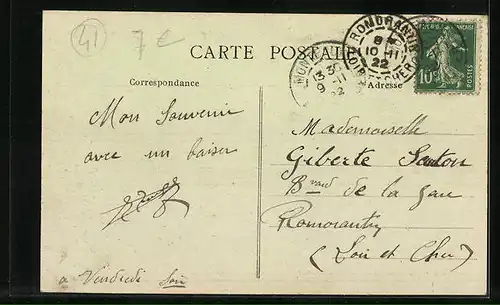 41
7€
CARTE POSTALE
ROMORANTIN
8
10-11
22
LOIR-ET-CHER
13 30
9-11
22
10c
POSTES
Correspondance
Adresse
Mon Souvenir
avec un baiser
Mademoiselle
Giberte Santon
Bvard de la gare
Romorantin
(Loir et Cher)
à Vendredi Soir